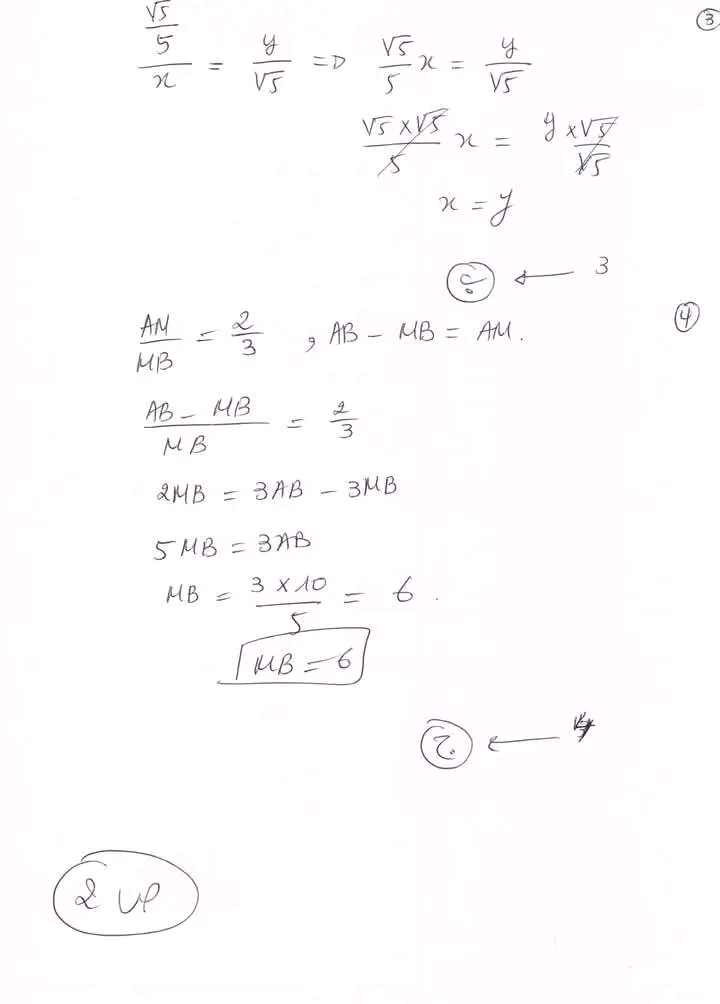 ③
(√5/5)/x = y/√5 => √5/5 x = y/√5
(√5 × √5)/5 x = (y × √5)/√5
x = y
← 3
④
AM/MB = 2/3 , AB - MB = AM.
(AB - MB)/MB = 2/3
2MB = 3AB - 3MB
5MB = 3AB
MB = (3 × 10)/5 = 6.
MB = 6
ج ← 4
2